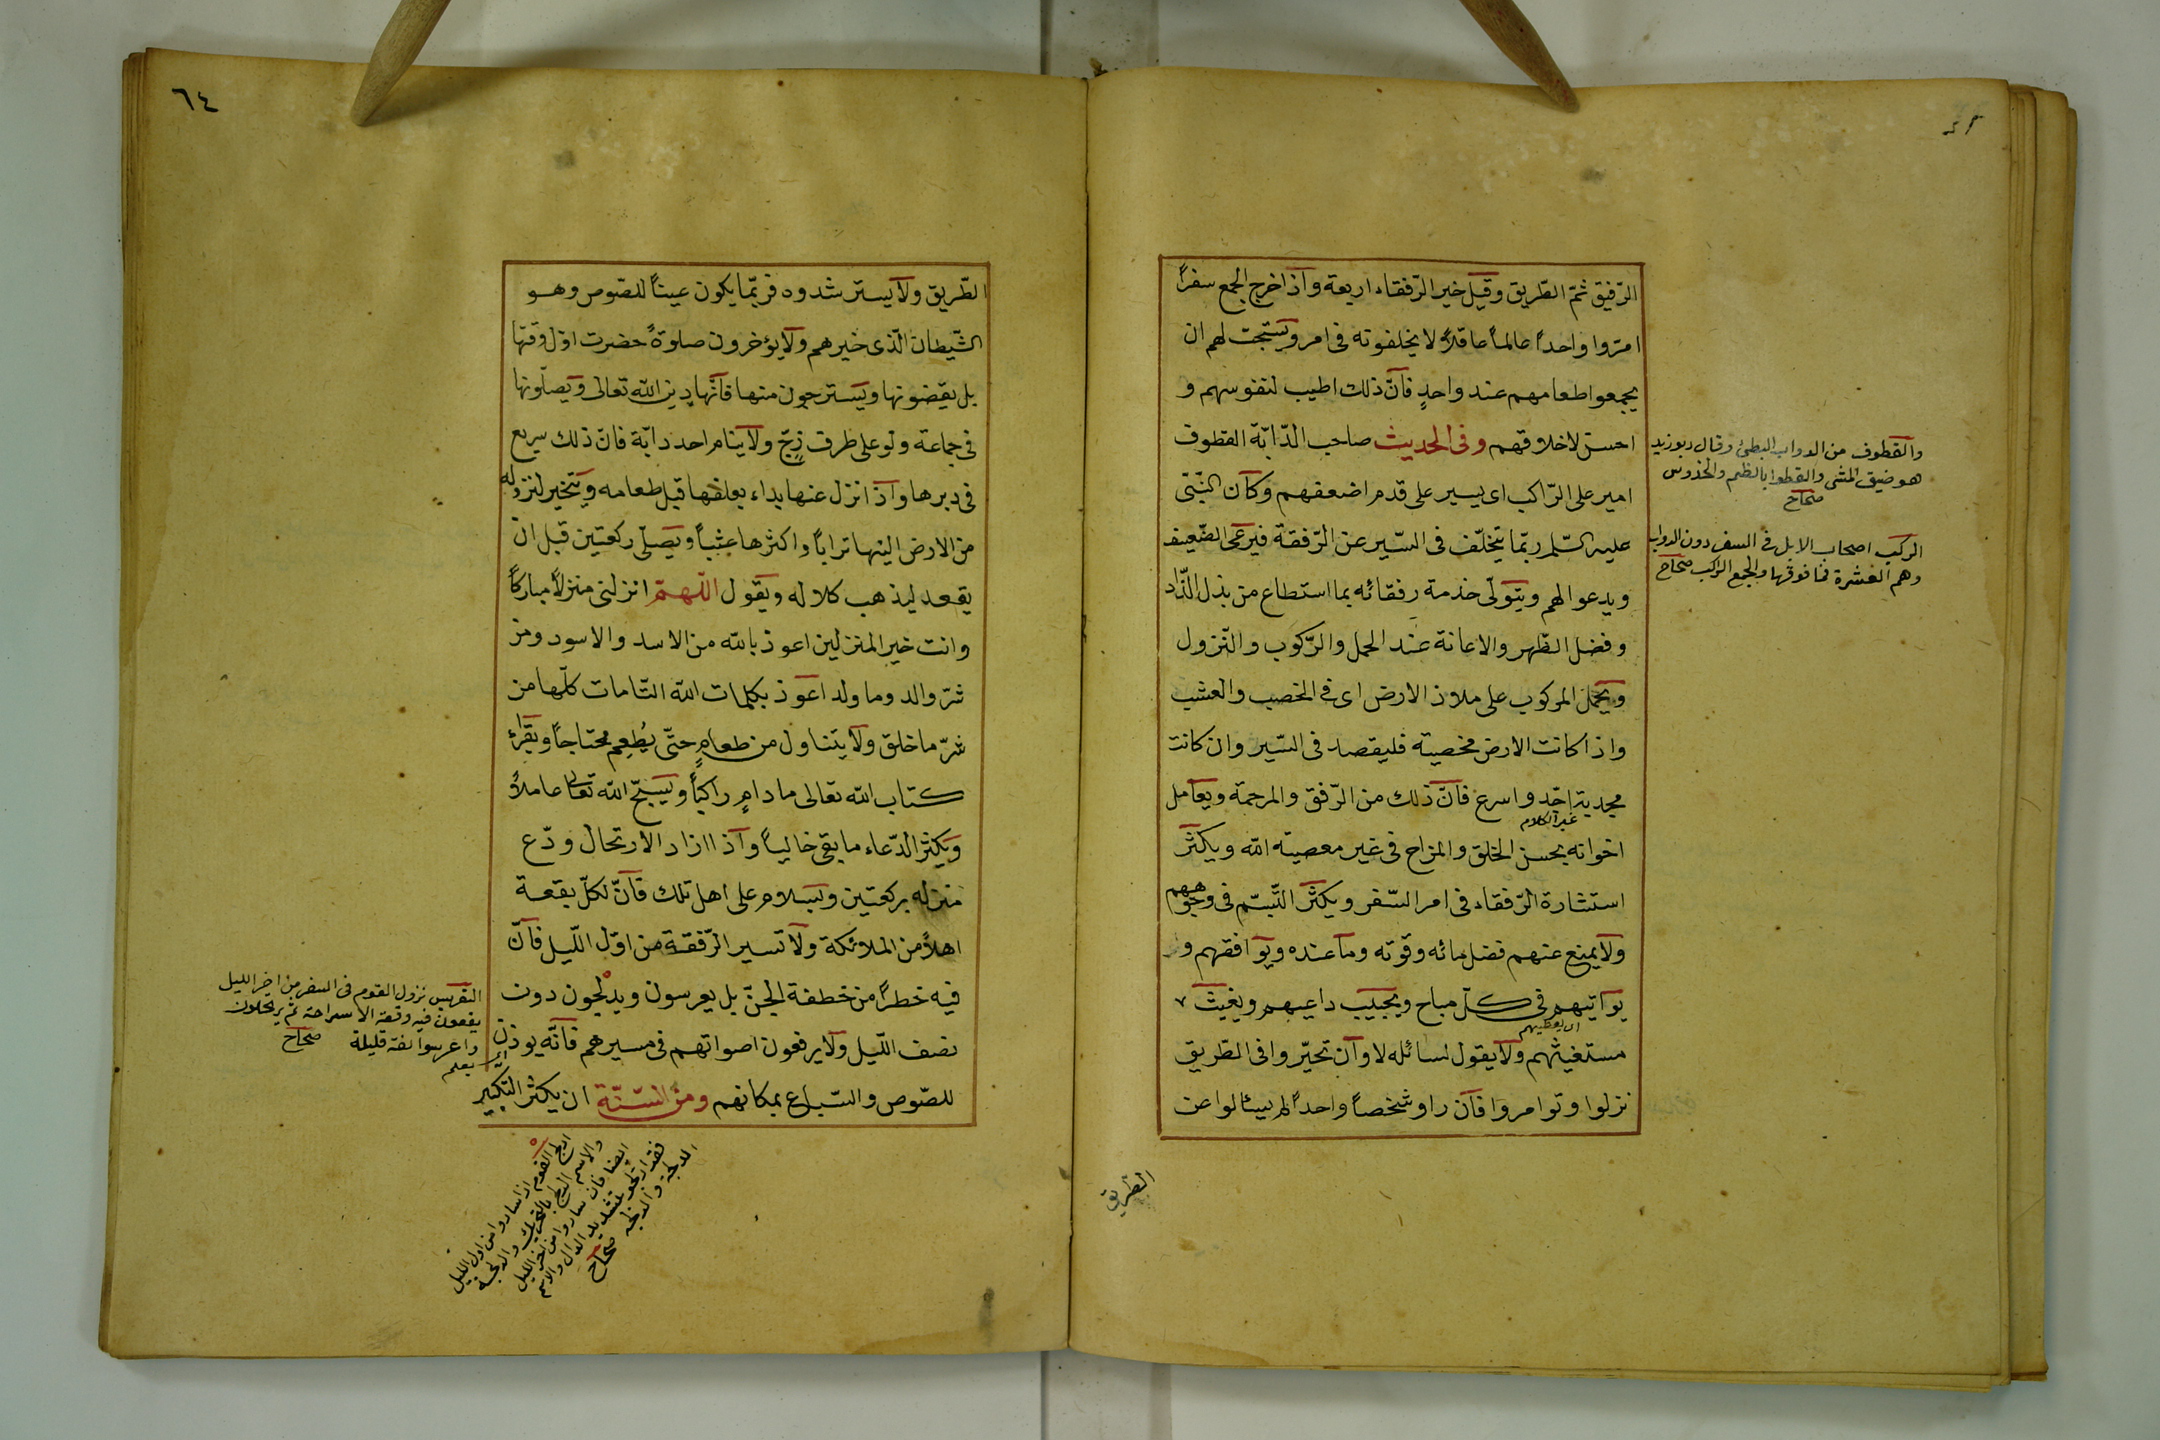 الرّفيق ثمّ الطّريق وقيل خير الرّفقاء اربعة واذا خرج الجمع سفراً
امرّوا واحداً عالماً عاقلاً لا يخلفونه فى امر ويستحبّ لهم ان
يجمعوا طعامهم عند واحدٍ فانّ ذلك اطيب لنفوسهم و
احسن لاخلاقهم وفى الحديث صاحب الدّابّة القطوف
امير على الرّاكب اى يسير على قدم اضعفهم وكان النّبىّ
عليه السّلم ربّما يتخلّف فى السّير عن الرّفقة فيزجى الضّعيف
ويدعوا لهم ويتولّى خذمة رفقائه بما استطاع من بذل الزّاد
وفضل الظّهر والاعانة عند الحمل والرّكوب والنّزول
ويحمل المركوب على ملاذ الارض اى فى الخصب والعشب
واذا كانت الارض مخصبة فليقصد فى السّير وان كانت
مجدبة احّد واسرع فانّ ذلك من الرّفق والمرحمة ويعامل
غير الكلام
اخوانه بحسن الخلق والمزاح فى غير معصية الله ويكثر
استشارة الرّفقاء فى امر السّفر ويكثر التّبسّم فى وجوههم
ولا يمنع عنهم فضل مائه وقوته وما عنده ويوافقهم و
يواتيهم فى كلّ مباح ويجيب داعيهم ويغيث
اى يعطيهم
مستغيثهم ولا يقول لسائله لا وان تحيّروا فى الطّريق
نزلوا وتوامروا فان راو شخصاً واحداً لم يسئالوا عن
الطريق
والقطوف من الدواب البطئ وقال ابو زيد
هو ضيق المشى
صحاح
الركب اصحاب الابل فى السفر دون الدواب
وهم العشرة فما فوقها والجمع اركب صحاح
٦٤
الطّريق ولا يسترشدوه فربّما يكون عيناً للصّوص وهو
الشّيطان الّذى حيرهم ولا يؤخرون صلوةً حضرت اوّل وقتها
بل يقضونها ويستريحون منها فانّها دين الله تعالى ويصلّونها
فى جماعة ولو على طرف زجّ ولا ينام احد دابّة فانّ ذلك سريع
فى دبرها واذا نزل عنها بداء بعلفها قبل طعامه ويتخير لنزوله
من الارض الينها تراباً واكثرها عشباً ويصلّى ركعتين قبل ان
يقعد ليذهب كلاله ويقول اللّهمّ انزلنى منزلاً مباركاً
وانت خير المنزلين اعوذ بالله من الاسد والاسود ومن
شرّ والد وما ولد اعوذ بكلمات الله التّامات كلّها من
شرّ ما خلق ولا يتناول من طعامٍ حتّى يُطعِم محتاجاً ويقراء
كتاب الله تعالى ما دام راكباً ويسبّح الله تعالى عاملاً
ويكثر الدّعاء ما بقى خالياً واذا اراد الارتحال ودّع
منزله بركعتين وبسلام على اهل تلك فانّ لكلّ بقعة
اهلاً من الملائكة ولا تسير الرّفقة من اوّل اللّيل فانّ
فيه خطراً من خطفة الجنّ بل يعرسون ويدلجون دون
نصف اللّيل ولا يرفعون اصواتهم فى مسيرهم فانّه يوذن
للصّوص والسّباع بمكانهم ومن السّنّة ان يكثر التّكبير
اى يعلم
التعريس نزول القوم فى السفر من اخر الليل
يقعون فيه وقعة الاستراحة ثم يرتحلون
واعرسوا لغة قليلة صحاح
ادلج القوم اذا ساروا من اول الليل
والاسم الدلج بالتحريك والدلجة
ايضا فان ساروا من اخر الليل
فقد ادّلجو بتشديد الدال والاسم
الدلجة والدلجة صحاح